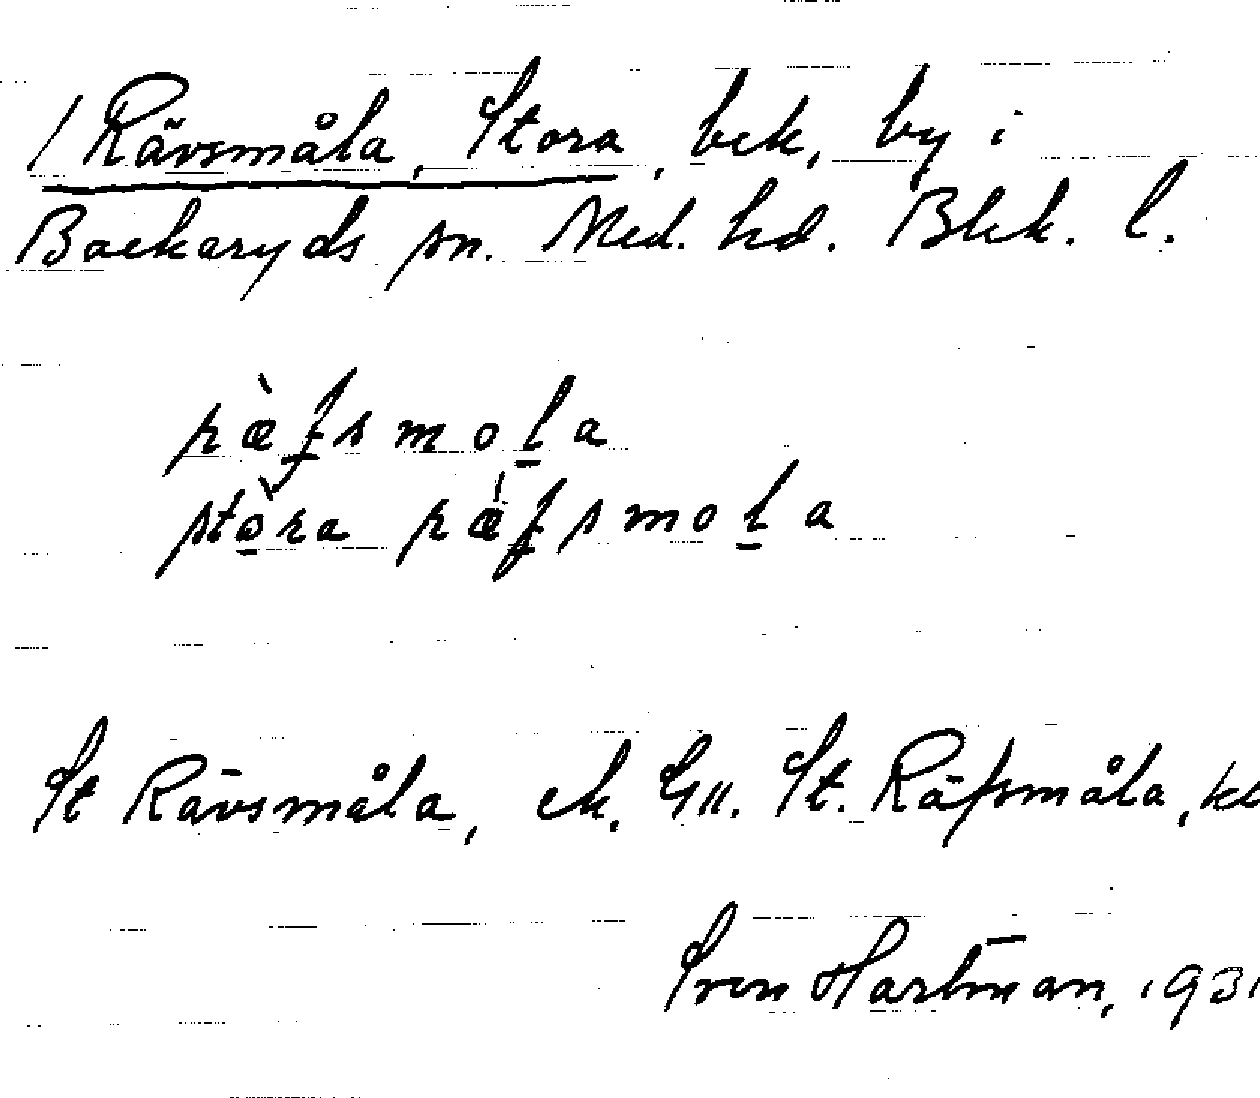 / Rävsmåla, Stora, bek, by i
Backaryds sn. Med. hd. Blek. l.
ræ̀fsmoḻa
stò̱ra ræ̀fsmoḻa
St Rävsmåla, ek. GU. St. Räfsmåla, kb
Sven Hartman, 1931